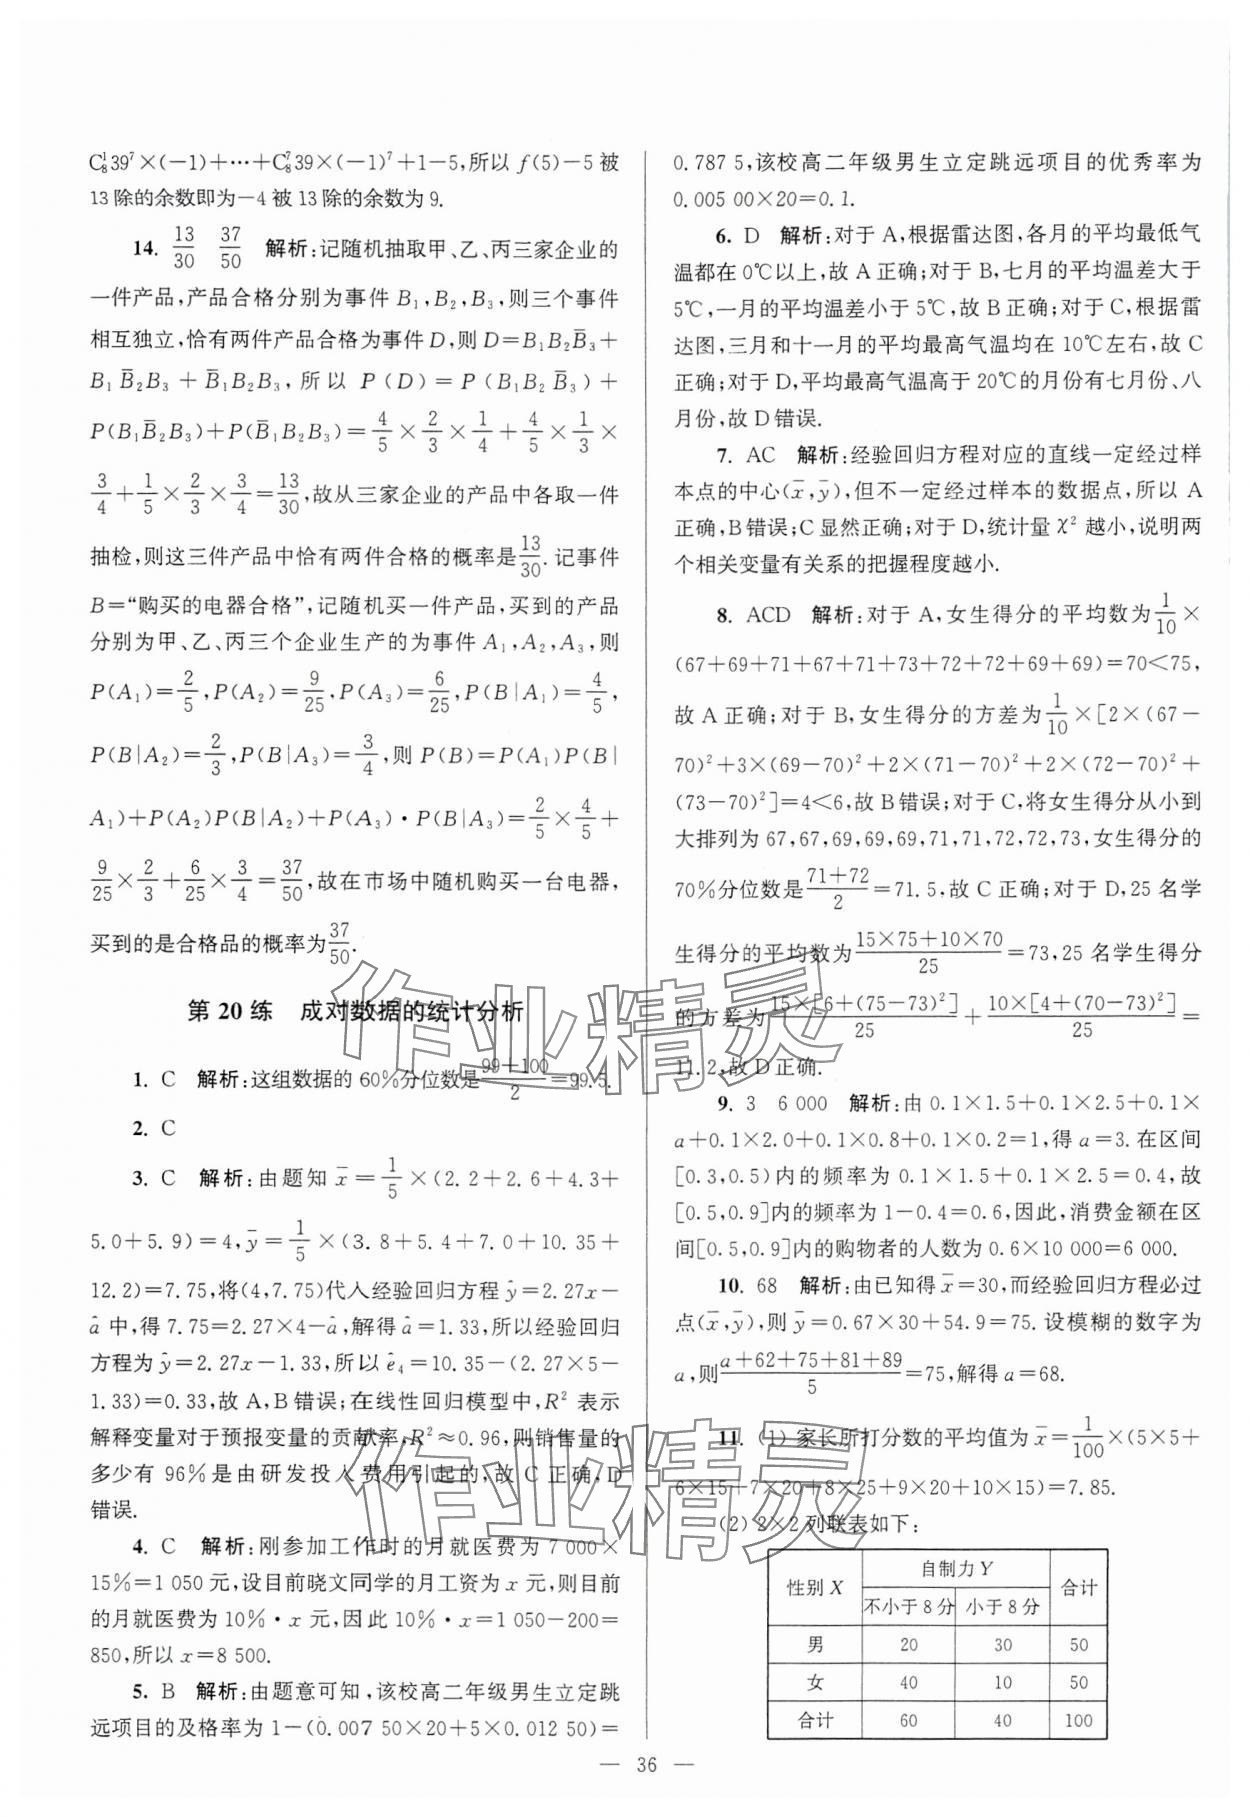 C₈¹39⁷×(−1)+⋯+C₈⁷39×(−1)⁷+1−5,所以 f(5)−5 被
13 除的余数即为−4 被 13 除的余数为 9.
14. 13/30 37/50 解析:记随机抽取甲、乙、丙三家企业的
一件产品,产品合格分别为事件 B₁,B₂,B₃,则三个事件
相互独立,恰有两件产品合格为事件 D,则 D=B₁B₂B̄₃+
B₁B̄₂B₃+B̄₁B₂B₃,所以 P(D)=P(B₁B₂B̄₃)+
P(B₁B̄₂B₃)+P(B̄₁B₂B₃)=4/5×2/3×1/4+4/5×1/3×
3/4+1/5×2/3×3/4=13/30,故从三家企业的产品中各取一件
抽检,则这三件产品中恰有两件合格的概率是13/30. 记事件
B=“购买的电器合格”,记随机买一件产品,买到的产品
分别为甲、乙、丙三个企业生产的为事件 A₁,A₂,A₃,则
P(A₁)=2/5,P(A₂)=9/25,P(A₃)=6/25,P(B|A₁)=4/5,
P(B|A₂)=2/3,P(B|A₃)=3/4,则 P(B)=P(A₁)P(B|
A₁)+P(A₂)P(B|A₂)+P(A₃)·P(B|A₃)=2/5×4/5+
9/25×2/3+6/25×3/4=37/50,故在市场中随机购买一台电器,
买到的是合格品的概率为37/50.
第 20 练 成对数据的统计分析
1. C 解析:这组数据的 60%分位数是(99+100)/2=99.5.
2. C
3. C 解析:由题知 x̄=1/5×(2.2+2.6+4.3+
5.0+5.9)=4,ȳ=1/5×(3.8+5.4+7.0+10.35+
12.2)=7.75,将(4,7.75)代入经验回归方程 ŷ=2.27x−
â 中,得 7.75=2.27×4−â,解得 â=1.33,所以经验回归
方程为 ŷ=2.27x−1.33,所以 ê₄=10.35−(2.27×5−
1.33)=0.33,故 A,B 错误;在线性回归模型中,R² 表示
解释变量对于预报变量的贡献率,R²≈0.96,则销售量的
多少有 96%是由研发投入费用引起的,故 C 正确,D
错误.
4. C 解析:刚参加工作时的月就医费为 7 000×
15%=1 050 元,设目前晓文同学的月工资为 x 元,则目前
的月就医费为 10%·x 元,因此 10%·x=1 050−200=
850,所以 x=8 500.
5. B 解析:由题意可知,该校高二年级男生立定跳
远项目的及格率为 1−(0.007 50×20+5×0.012 50)=
0.787 5,该校高二年级男生立定跳远项目的优秀率为
0.005 00×20=0.1.
6. D 解析:对于 A,根据雷达图,各月的平均最低气
温都在 0℃以上,故 A 正确;对于 B,七月的平均温差大于
5℃,一月的平均温差小于 5℃,故 B 正确;对于 C,根据雷
达图,三月和十一月的平均最高气温均在 10℃左右,故 C
正确;对于 D,平均最高气温高于 20℃的月份有七月份、八
月份,故 D 错误.
7. AC 解析:经验回归方程对应的直线一定经过样
本点的中心(x̄,ȳ),但不一定经过样本的数据点,所以 A
正确,B 错误;C 显然正确;对于 D,统计量 χ² 越小,说明两
个相关变量有关系的把握程度越小.
8. ACD 解析:对于 A,女生得分的平均数为1/10×
(67+69+71+67+71+73+72+72+69+69)=70<75,
故 A 正确;对于 B,女生得分的方差为1/10×[2×(67−
70)²+3×(69−70)²+2×(71−70)²+2×(72−70)²+
(73−70)²]=4<6,故 B 错误;对于 C,将女生得分从小到
大排列为 67,67,69,69,69,71,71,72,72,73,女生得分的
70%分位数是(71+72)/2=71.5,故 C 正确;对于 D,25 名学
生得分的平均数为(15×75+10×70)/25=73,25 名学生得分
的方差为(15×[6+(75−73)²])/25+(10×[4+(70−73)²])/25=
11.2,故 D 正确.
9. 3 6 000 解析:由 0.1×1.5+0.1×2.5+0.1×
a+0.1×2.0+0.1×0.8+0.1×0.2=1,得 a=3. 在区间
[0.3,0.5)内的频率为 0.1×1.5+0.1×2.5=0.4,故
[0.5,0.9]内的频率为 1−0.4=0.6,因此,消费金额在区
间[0.5,0.9]内的购物者的人数为 0.6×10 000=6 000.
10. 68 解析:由已知得 x̄=30,而经验回归方程必过
点(x̄,ȳ),则 ȳ=0.67×30+54.9=75. 设模糊的数字为
a,则(a+62+75+81+89)/5=75,解得 a=68.
11. (1) 家长所打分数的平均值为 x̄=1/100×(5×5+
6×15+7×20+8×25+9×20+10×15)=7.85.
(2) 2×2 列联表如下:
性别 X 自制力 Y 合计
不小于 8 分 小于 8 分
男 20 30 50
女 40 10 50
合计 60 40 100
— 36 —
作业精灵
作业精灵